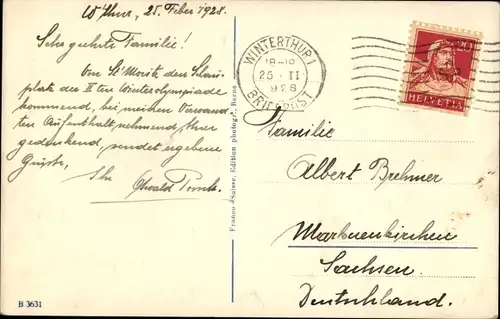 W'thur, 25. Feber 1928.
Sehr geehrte Familie!
Von St. Moritz des Schau-
platz des II ten Winterolympiade
kommend, bei meinen Verwand-
ten Aufenthalt nehmend, Ihrer
gedenkend, sendet ergebene
Grüsse,
Ihr Oswald
Franco-Suisse, Edition photogr., Berne
B 3631
WINTERTHUR 1
25 · II
1928
BRIEFPOST
HELVETIA
Familie
Albert Brehmer
Markneukirchen
Sachsen.
Deutschland.